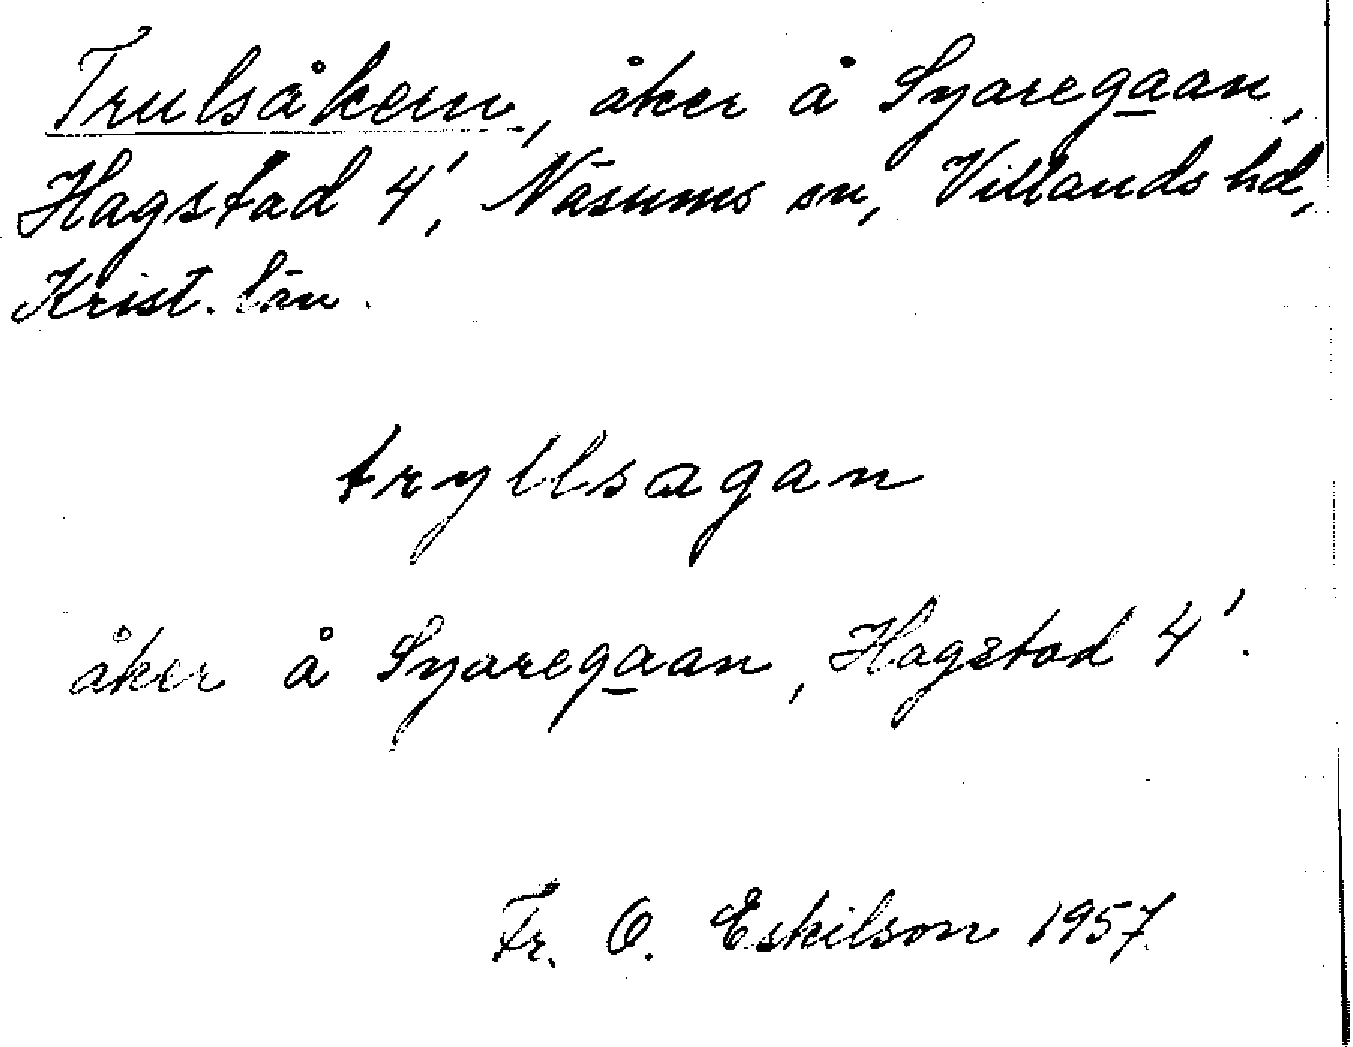 Trulsåkern, åker å Syaregaan,
Hagstad 4', Näsums sn, Villands hd,
Krist. län.
tryllsagan
åker å Syaregaan, Hagstad 4'.
Fr. O. Eskilson 1957.